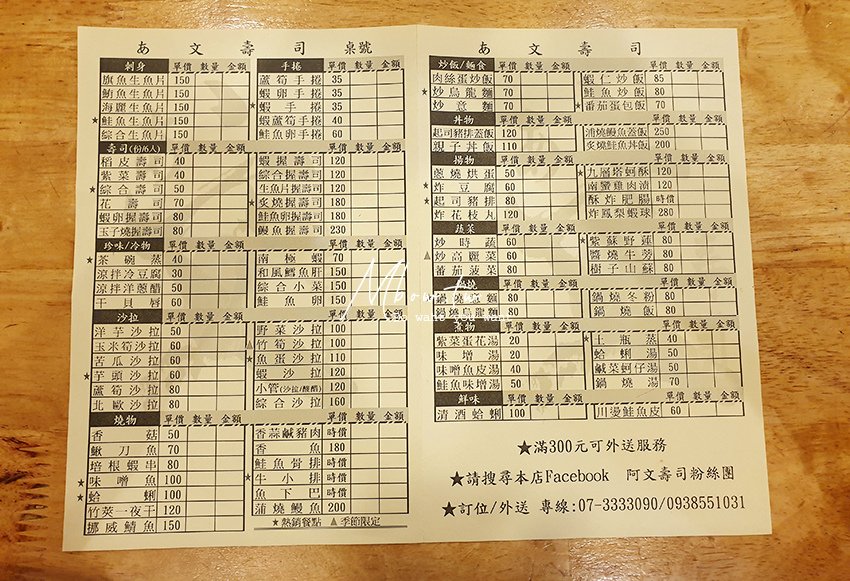 あ 文 壽 司 桌號
刺身 單價 數量 金額
旗魚生魚片 150
鮪魚生魚片 150
海鱺生魚片 150
★鮭魚生魚片 150
綜合生魚片 150
手捲 單價 數量 金額
蘆筍手捲 35
蝦卵手捲 35
★蝦手捲 35
蝦蘆筍手捲 40
鮭魚卵手捲 60
壽司(份/6入) 單價 數量 金額
稻皮壽司 40
紫菜壽司 40
★綜合壽司 50
花壽司 70
蝦卵握壽司 80
玉子燒握壽司 80
蝦握壽司 120
綜合握壽司 120
生魚片握壽司 120
★炙燒握壽司 180
鮭魚卵握壽司 180
鰻魚握壽司 230
珍味/冷物 單價 數量 金額
★茶碗蒸 40
涼拌冷豆腐 30
涼拌洋蔥醋 50
干貝唇 60
南極蝦 70
和風鱈魚肝 150
綜合小菜 150
鮭魚卵 150
沙拉 單價 數量 金額
洋芋沙拉 50
玉米筍沙拉 60
苦瓜沙拉 60
★芋頭沙拉 60
蘆筍沙拉 80
北歐沙拉 80
野菜沙拉 100
▲竹筍沙拉 100
★魚蛋沙拉 110
蝦沙拉 120
小管(沙拉/酸醋) 120
綜合沙拉 160
燒物 單價 數量 金額
香菇 50
鰍刀魚 70
培根蝦串 80
★味噌魚 100
★蛤蜊 100
竹莢一夜干 120
挪威鯖魚 150
香蒜鹹豬肉 時價
香魚 180
鮭魚骨排 時價
★牛小排 時價
魚下巴 時價
蒲燒鰻魚 200
★熱銷餐點 ▲季節限定
あ 文 壽 司
炒飯/麵食 單價 數量 金額
肉絲蛋炒飯 70
★炒烏龍麵 70
炒意麵 70
蝦仁炒飯 85
鮭魚炒飯 80
★番茄蛋包飯 80
丼物 單價 數量 金額
起司豬排蓋飯 120
親子丼飯 110
蒲燒鰻魚蓋飯 250
炙燒鮭魚丼飯 200
揚物 單價 數量 金額
蔥燒烘蛋 50
★炸豆腐 60
★起司豬排 80
炸花枝丸 70
★九層塔蚵酥 120
南蠻雞肉漬 120
酥炸肥腸 時價
炸鳳梨蝦球 280
蔬菜 單價 數量 金額
炒時蔬 60
▲炒高麗菜 60
蕃茄菠菜 60
★紫蘇野蓮 80
醬燒牛蒡 80
樹子山蘇 80
單價 數量 金額
鍋燒意麵 80
鍋燒烏龍麵 80
鍋燒冬粉 80
鍋燒飯 80
煮物 單價 數量 金額
紫菜蛋花湯 20
味增湯 20
味噌魚皮湯 40
鮭魚味增湯 50
★土瓶蒸 40
蛤蜊湯 50
鹹菜蚵仔湯 50
鍋燒湯 70
鮮味 單價 數量 金額
清酒蛤蜊 100
川燙鮭魚皮 60
★滿300元可外送服務
★請搜尋本店Facebook 阿文壽司粉絲團
★訂位/外送 專線:07-3333090/0938551031